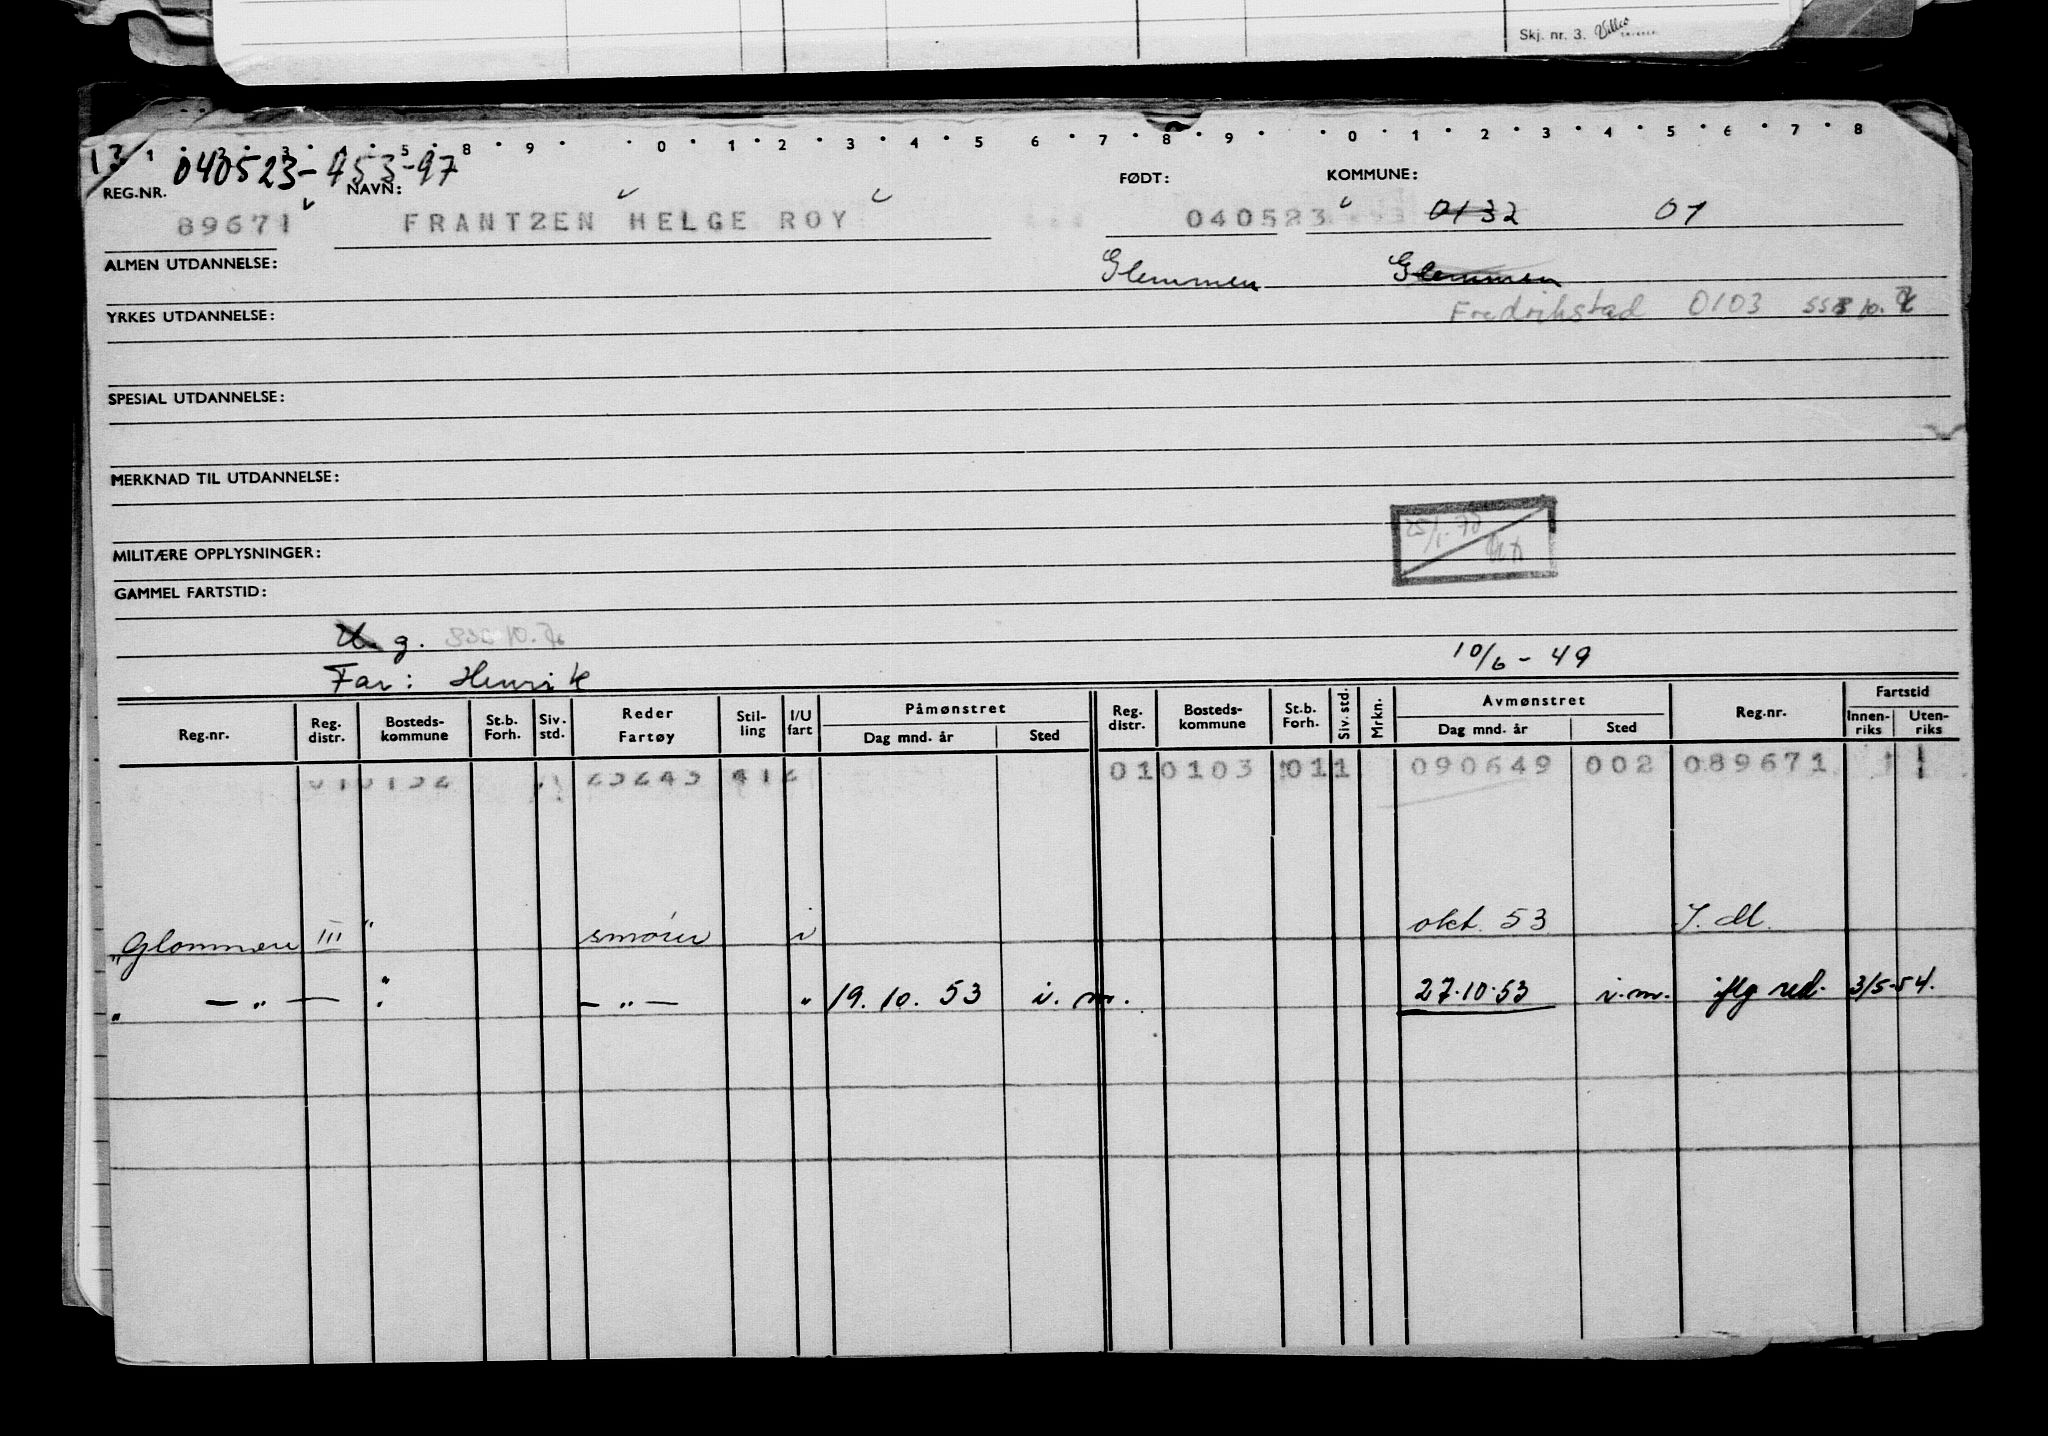 Skj. nr. 3.
13
1 2 3 4 5 8 9 0 1 2 3 4 5 6 7 8 9 0 1 2 3 4 5 6 7 8
040523-453-97
REG.NR. NAVN: FØDT: KOMMUNE:
89671 FRANTZEN HELGE ROY 040523 0132 01
ALMEN UTDANNELSE: Glemmen Glemmen
YRKES UTDANNELSE: Fredrikstad 0103
SPESIAL UTDANNELSE:
MERKNAD TIL UTDANNELSE:
25/1.70
MILITÆRE OPPLYSNINGER:
GAMMEL FARTSTID:
U. g.
10/6-49
Far: Henrik
Reg.nr. Reg. distr. Bosteds-kommune St.b. Forh. Siv. std. Reder Fartøy Stil-ling I/U fart Påmønstret Dag mnd. år Sted Reg. distr. Bosteds-kommune St.b. Forh. Siv. std. Mrkn. Avmønstret Dag mnd. år Sted Reg.nr. Fartstid Innen-riks Uten-riks
010132 23243 412 010103 011 090649 002 089671
"Glommen III " smører i okt. 53 J. M.
" — " — " — " — " 19. 10. 53 i. m. 27.10.53 i.m. iflg red. 3/5-54.